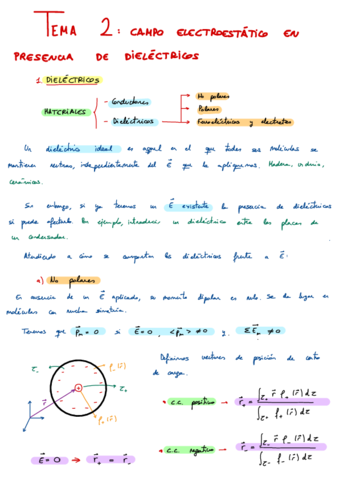 TEMA 2: CAMPO ELECTROESTÁTICO EN
PRESENCIA DE DIELÉCTRICOS
1. DIELÉCTRICOS
MATERIALES
- Conductores
- Dieléctricos
No polares
Polares
Ferroeléctricos y electretes
Un dieléctrico ideal es aquel en el que todas sus moléculas se
mantienen neutras, independientemente del E⃗ que le apliquemos. Madera, vidrio,
cerámicas.
Sin embargo, si ya tenemos un E⃗ existente la presencia de dieléctricos
sí puede afectarlo. Por ejemplo, introducir un dieléctrico entre las placas de
un condensador.
Atendiendo a cómo se comportan los dieléctricos frente a E⃗:
a) No polares
En ausencia de un E⃗ aplicado, su momento dipolar es nulo. Se da lugar en
moléculas con mucha simetría.
Tenemos que p⃗m = 0 si E⃗ = 0, <p⃗m> ≠ 0 y
Definimos vectores de posición de centro
de carga.
τ- ρ-(r⃗)
τ+
ρ+(r⃗)
r⃗
• c.c. positivo → r⃗+ = ∫τ+ r⃗ ρ+(r⃗) dτ / ∫τ+ ρ+(r⃗) dτ
• c.c. negativo → r⃗- = ∫τ- r⃗ ρ-(r⃗) dτ / ∫τ- ρ-(r⃗) dτ
E⃗ = 0 → r⃗+ = r⃗-